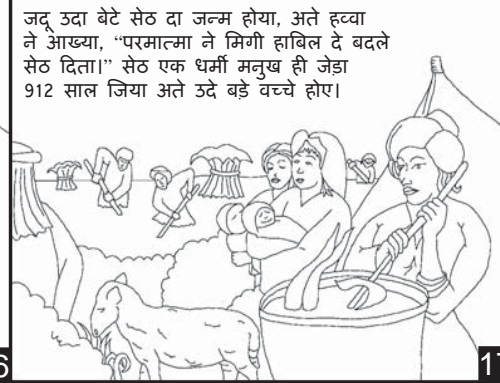 जदू उदा बेटे सेठ दा जन्म होया, अते हव्वा
ने आख्या, “परमात्मा ने मिगी हाबिल दे बदले
सेठ दिता।” सेठ एक धर्मी मनुख ही जेड़ा
912 साल जिया अते उदे बड़े वच्चे होए।
6
17